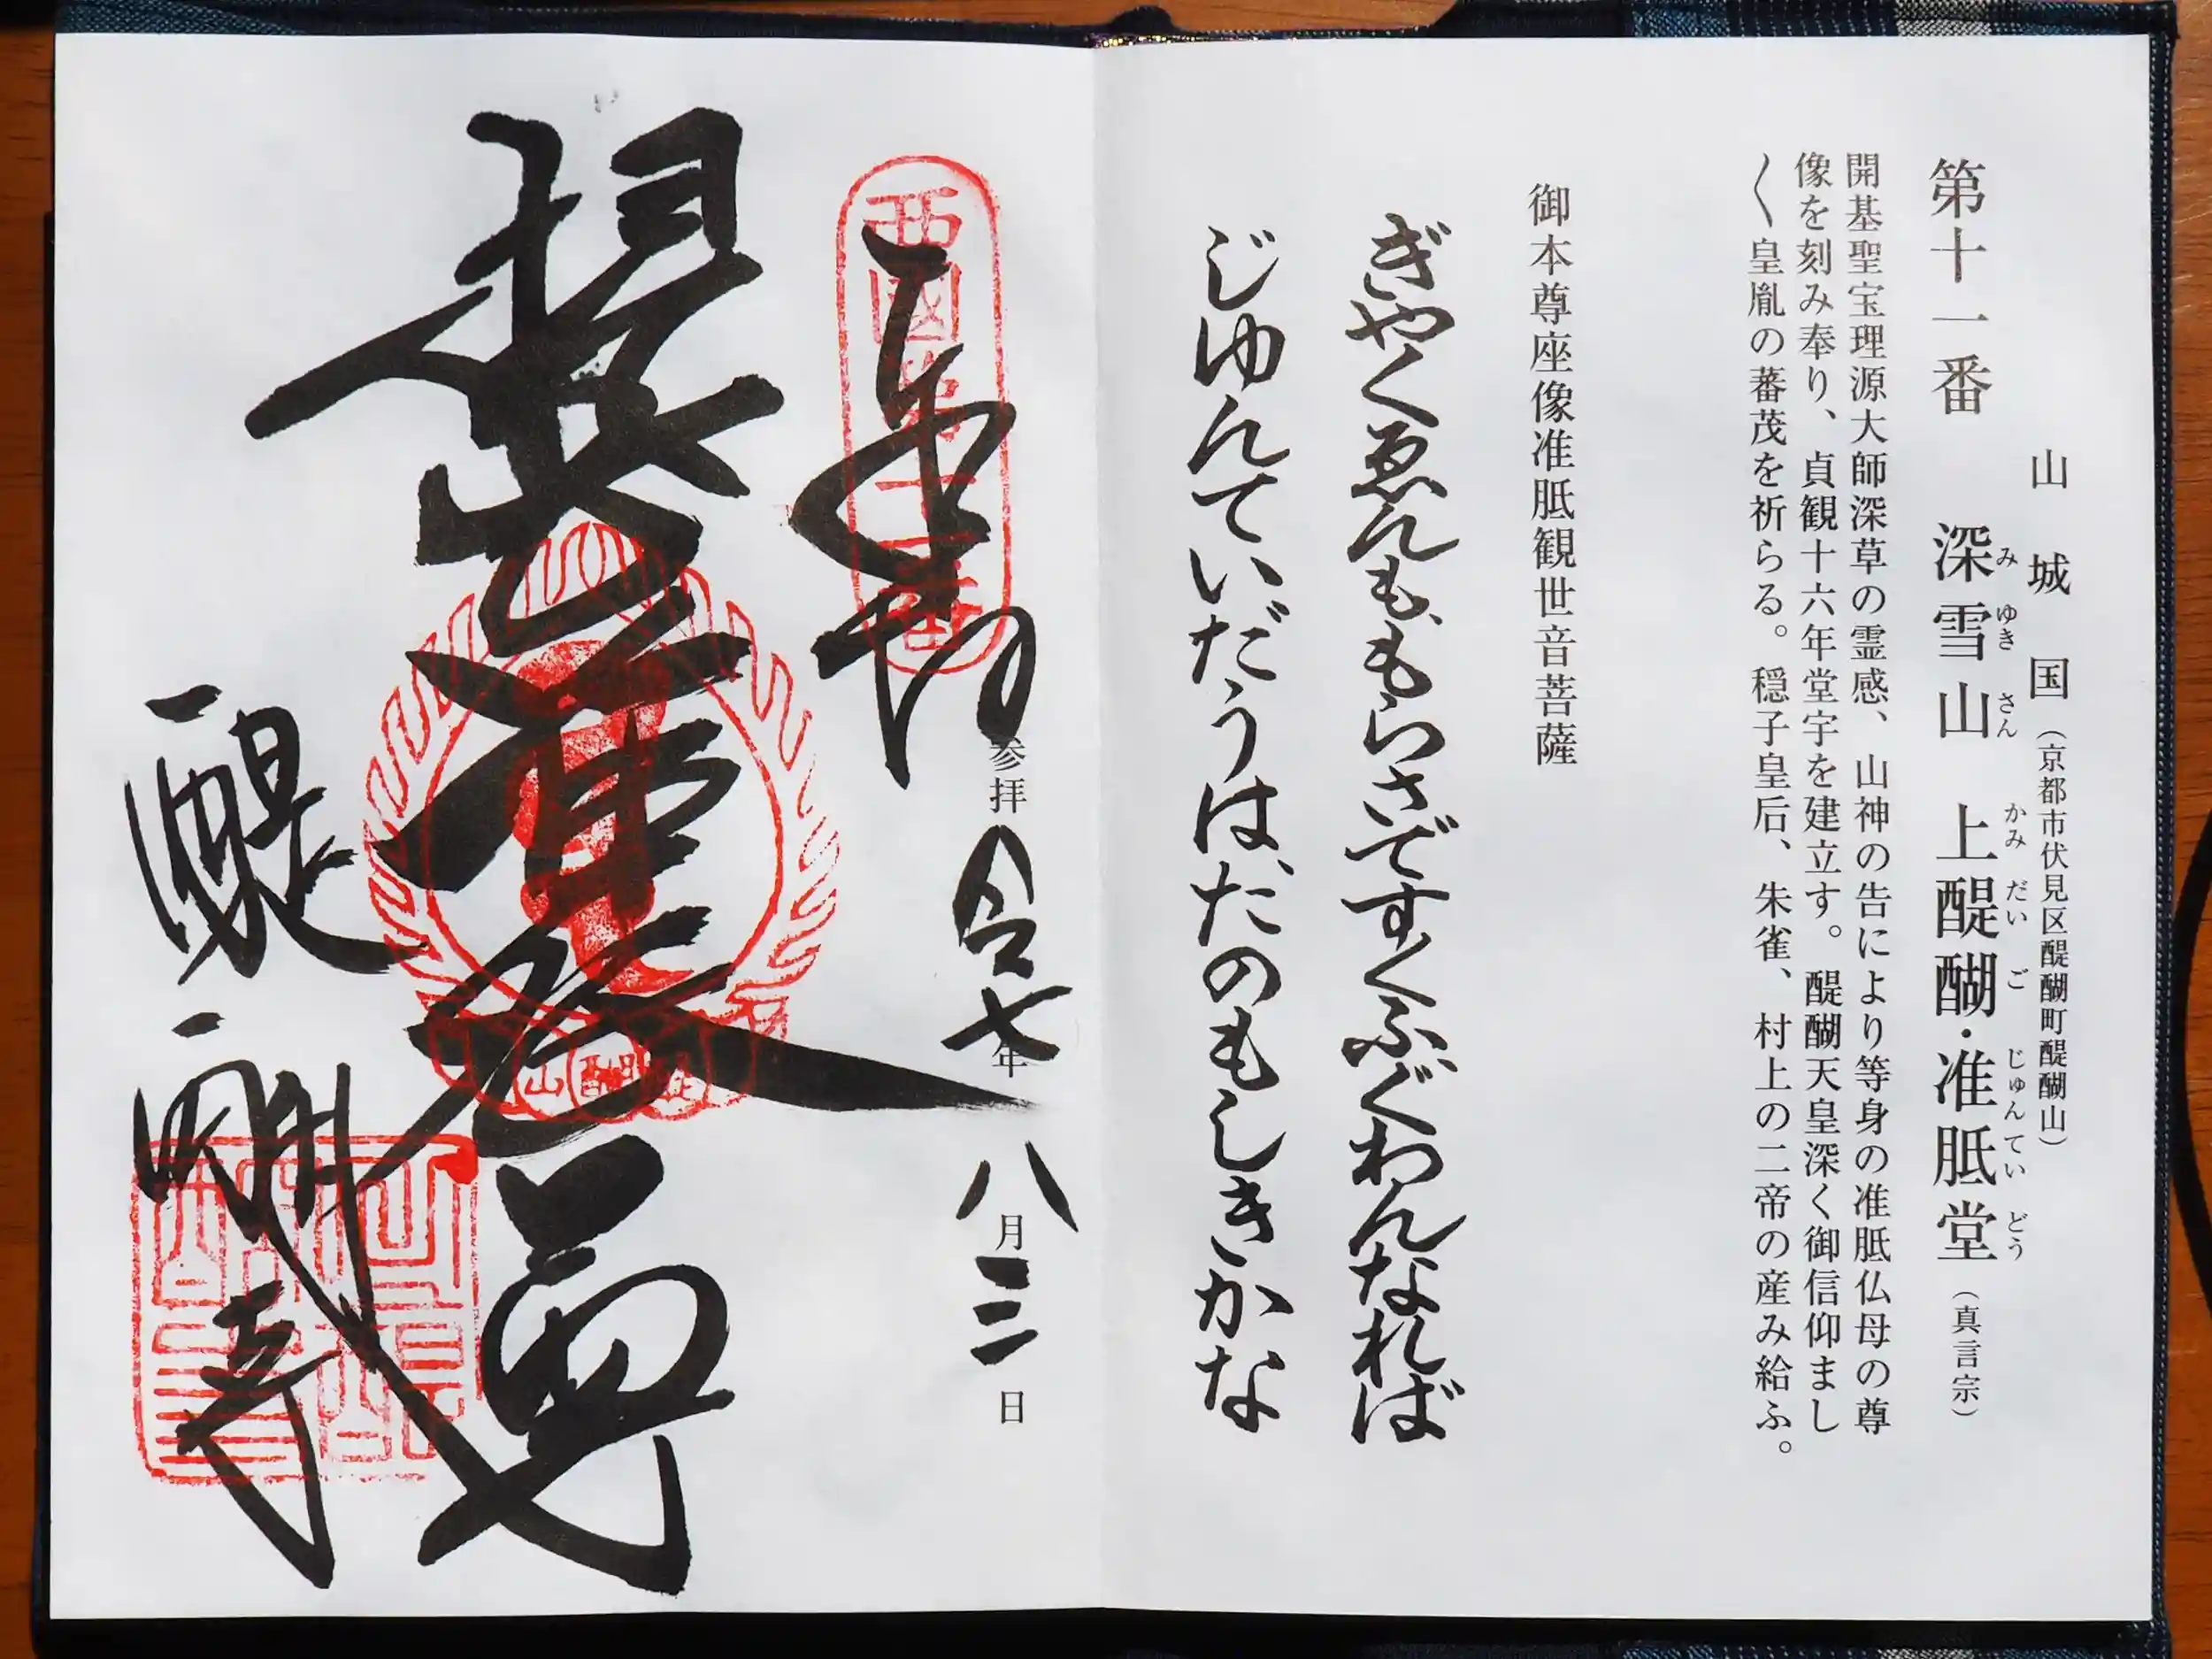 山城国（京都市伏見区醍醐町醍醐山）
第十一番 深雪山 上醍醐・准胝堂（真言宗）
み ゆき さん かみ だい ご じゅん てい どう
開基聖宝理源大師深草の霊感、山神の告により等身の准胝仏母の尊
像を刻み奉り、貞観十六年堂宇を建立す。醍醐天皇深く御信仰まし
〱皇胤の蕃茂を祈らる。穏子皇后、朱雀、村上の二帝の産み給ふ。
御本尊座像准胝観世音菩薩
ぎやくゑんも、もらさですくふ、ぐわんなれば
じゆんていだうは、たのもしきかな
西國第十一番
参拝 令七年八月三日
醍醐寺